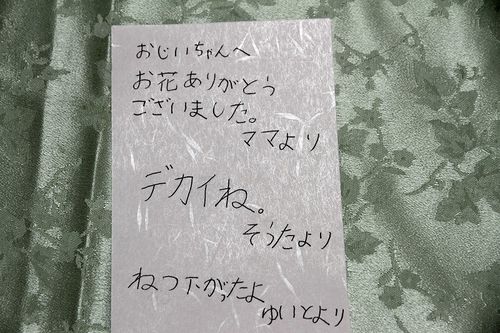 おじいちゃんへ
お花ありがとう
ございました。
ママより
デカイね。
そうたより
ねつ下がったよ
ゆいとより